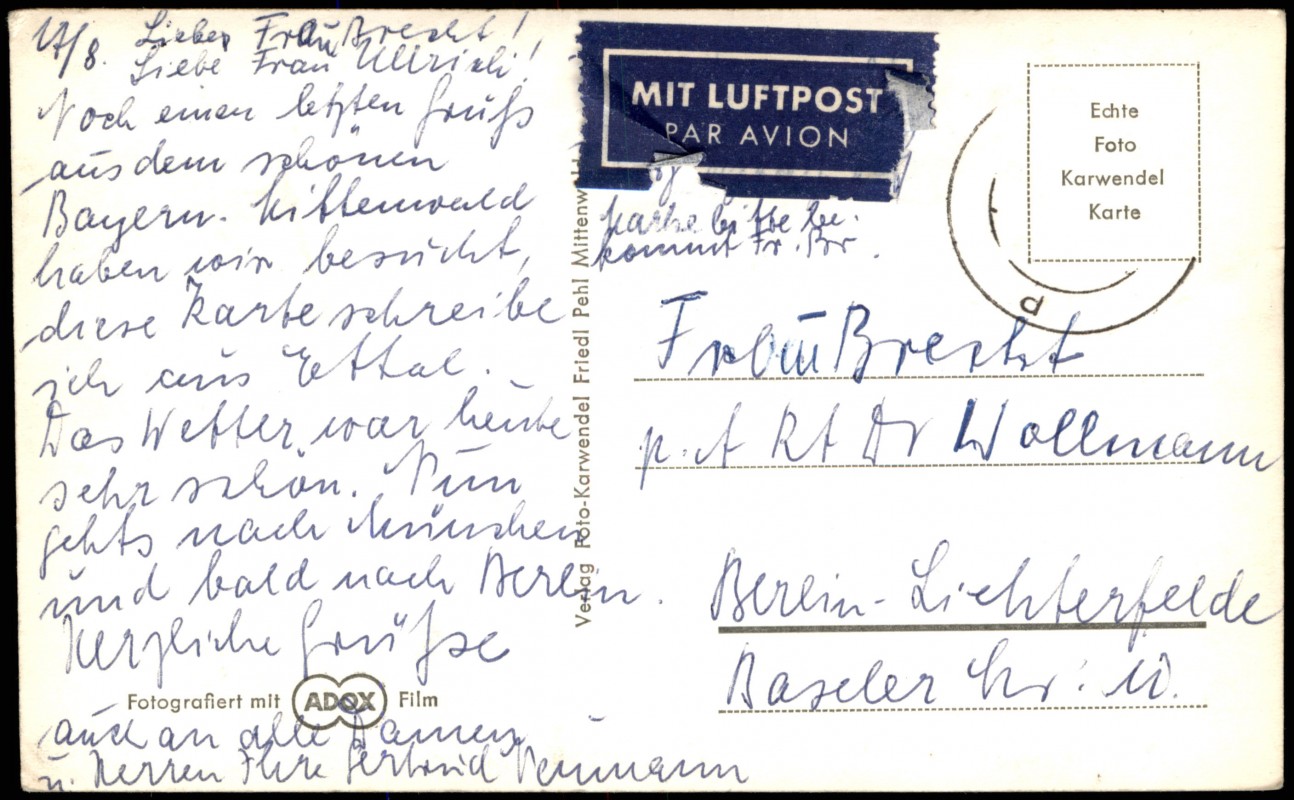 17/8. Liebe Frau Brecht!
Liebe Frau Ullrich!
Noch einen letzten Gruß
aus dem schönen
Bayern. Mittenwald
haben wir besucht,
diese Karte schreibe
ich aus Ettal.
Das Wetter war heute
sehr schön. Nun
gehts nach München
und bald nach Berlin.
Herzliche Grüße
Fotografiert mit ADOX Film
auch an alle Damen
u. Herren Ihre Gertrud Neumann
Verlag Foto-Karwendel Friedl Pehl Mittenwald
MIT LUFTPOST
PAR AVION
Marke bitte be-
kommt Fr. Br.
Echte
Foto
Karwendel
Karte
Frau Brecht
p. A RA Dr Wollmann
Berlin-Lichterfelde
Baseler Str.